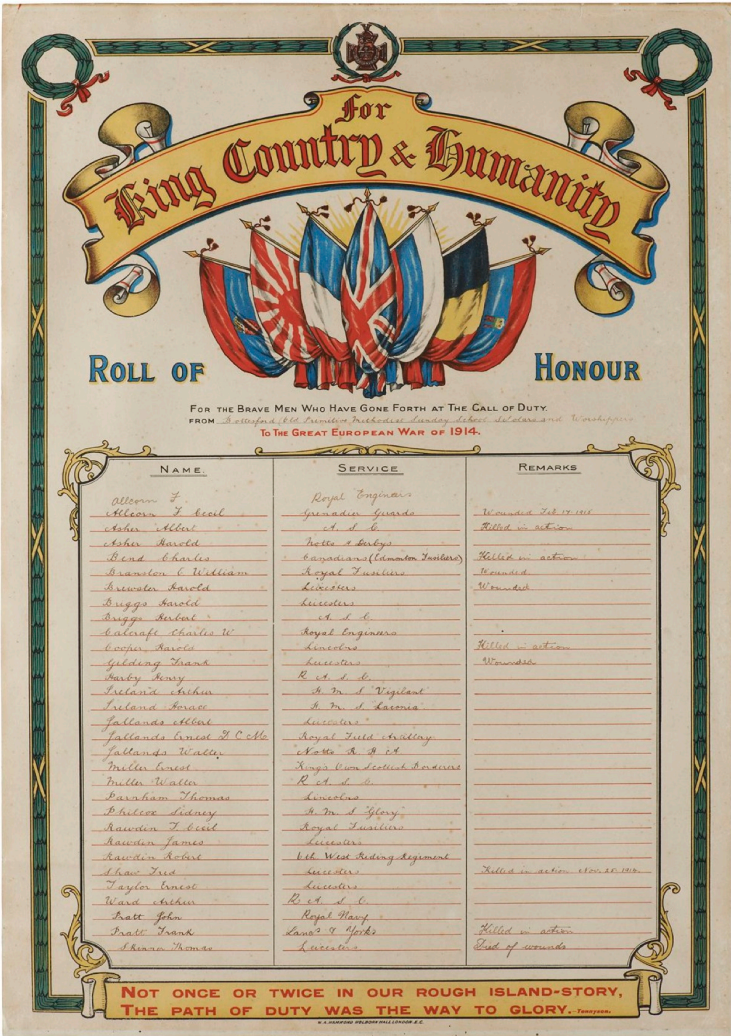 For
King Country & Humanity
ROLL OF HONOUR
FOR THE BRAVE MEN WHO HAVE GONE FORTH AT THE CALL OF DUTY.
FROM Bottesford Old Primitive Methodist Sunday School Scholars and Worshippers
TO THE GREAT EUROPEAN WAR OF 1914.
NAME. SERVICE REMARKS
Allcorn F. Royal Engineers
Allcorn F Cecil Grenadier Guards Wounded Feb 17 1915
Asher Albert A. S. C. Killed in action
Asher Harold Notts & Derbys
Bend Charles Canadians (Edmonton Fusiliers) Killed in action
Branston C William Royal Fusiliers Wounded
Brewster Harold Leicesters Wounded
Briggs Harold Leicesters
Briggs Herbert A. S. C.
Calcraft Charles W Royal Engineers
Cooper Harold Lincolns Killed in action
Gilding Frank Leicesters Wounded
Harby Henry R. A. S. C.
Ireland Arthur H. M. S "Vigilant"
Ireland Horace H. M. S "Laconia"
Jallands Albert Leicesters
Jallands Ernest D C M Royal Field Artillery
Jallands Walter Notts R. H A
Miller Ernest King's Own Scottish Borderers
Miller Walter R. A. S. C.
Parnham Thomas Lincolns
Philcox Sidney H. M. S "Glory"
Rawdin F Cecil Royal Fusiliers
Rawdin James Leicesters
Rawdin Robert 6th West Riding Regiment
Shaw Fred Leicesters Killed in action Nov. 25
Taylor Ernest Leicesters
Ward Arthur R. A. S. C.
Pratt John Royal Navy
Pratt Frank Lancs & Yorks Killed in action
Skinner Thomas Leicesters Died of wounds
NOT ONCE OR TWICE IN OUR ROUGH ISLAND-STORY,
THE PATH OF DUTY WAS THE WAY TO GLORY. -Tennyson.
HOLBORN HALL LONDON. E.C.